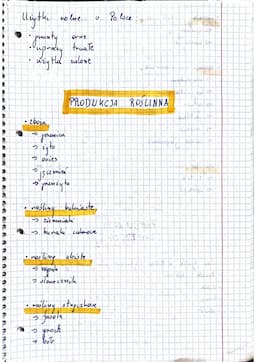 Użytki rolne w Polsce
• grunty orne
• uprawy trwałe
• użytki zielone
PRODUKCJA ROŚLINNA
• zboża
→ pszenica
→ żyto
→ owies
→ jęczmień
→ pszenżyto
• rośliny bulwiaste
→ ziemniaki
→ buraki cukrowe
• rośliny oleiste
→ rzepak
→ słonecznik
• rośliny strączkowe
→ fasola
→ groch
→ bób